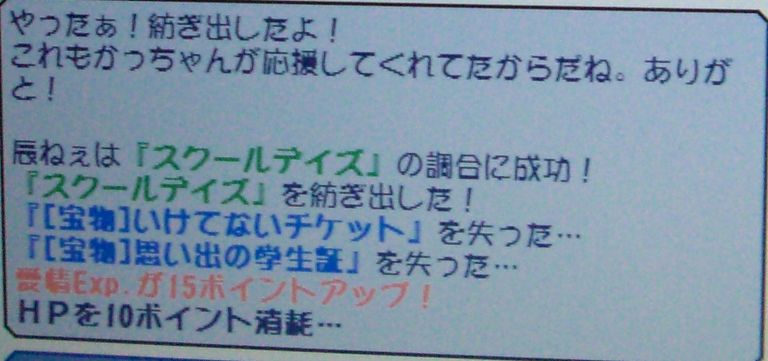 やったぁ！紡ぎ出したよ！
これもかっちゃんが応援してくれてたからだね。ありが
と！
辰ねぇは『スクールデイズ』の調合に成功！
『スクールデイズ』を紡ぎ出した！
『[宝物]いけてないチケット』を失った…
『[宝物]思い出の学生証』を失った…
愛情Exp.が15ポイントアップ！
ＨＰを10ポイント消耗…